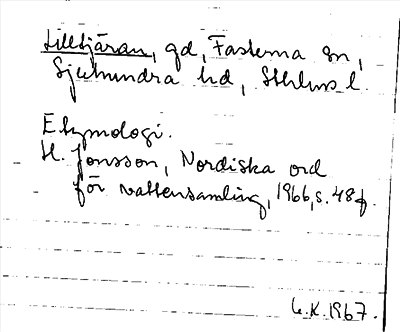 Lilltjäran, gd, Fasterna sn,
Sjuhundra hd, Sthlms l.
Etymologi.
H. Jonsson, Nordiska ord
för vattensamling, 1966, s. 48 f.
1967.